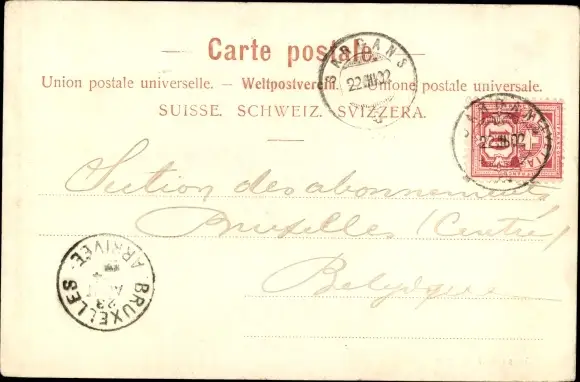 Carte postale.
Union postale universelle. — Weltpostverein. — Unione postale universale.
SUISSE. SCHWEIZ. SVIZZERA.
SARGANS
22.III.02
SARGANS
22.III.02
10
Section des abonnements,
Bruxelles (Centre)
Belgique
BRUXELLES
ARRIVÉE
23